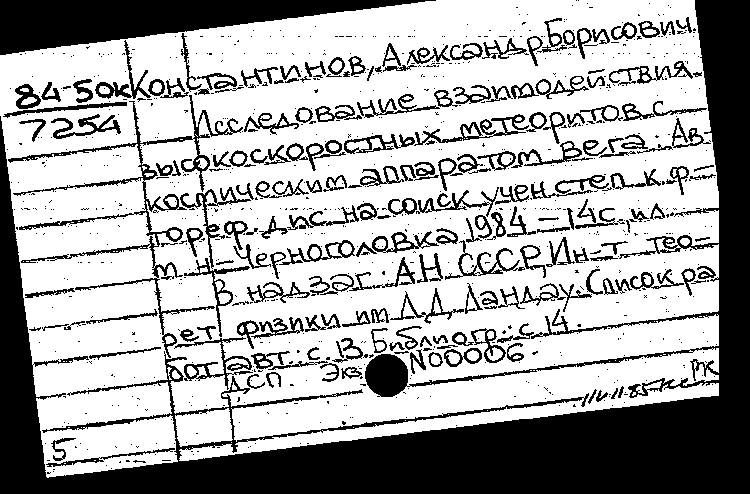 84-50к
7254
Константинов, Александр Борисович.
Исследование взаимодействия
высокоскоростных метеоритов с
космическим аппаратом Вега: Ав-
тореф. дис на соиск учен степ к. ф-
м н - Черноголовка, 1984 - 14с, ил.
В надзаг: АН СССР, Ин-т тео-
рет физики им Л.Д. Ландау. Список ра
бот авт: с. 13. Библиогр.: с 14.
ДСП. Экз N00006.
РК
5